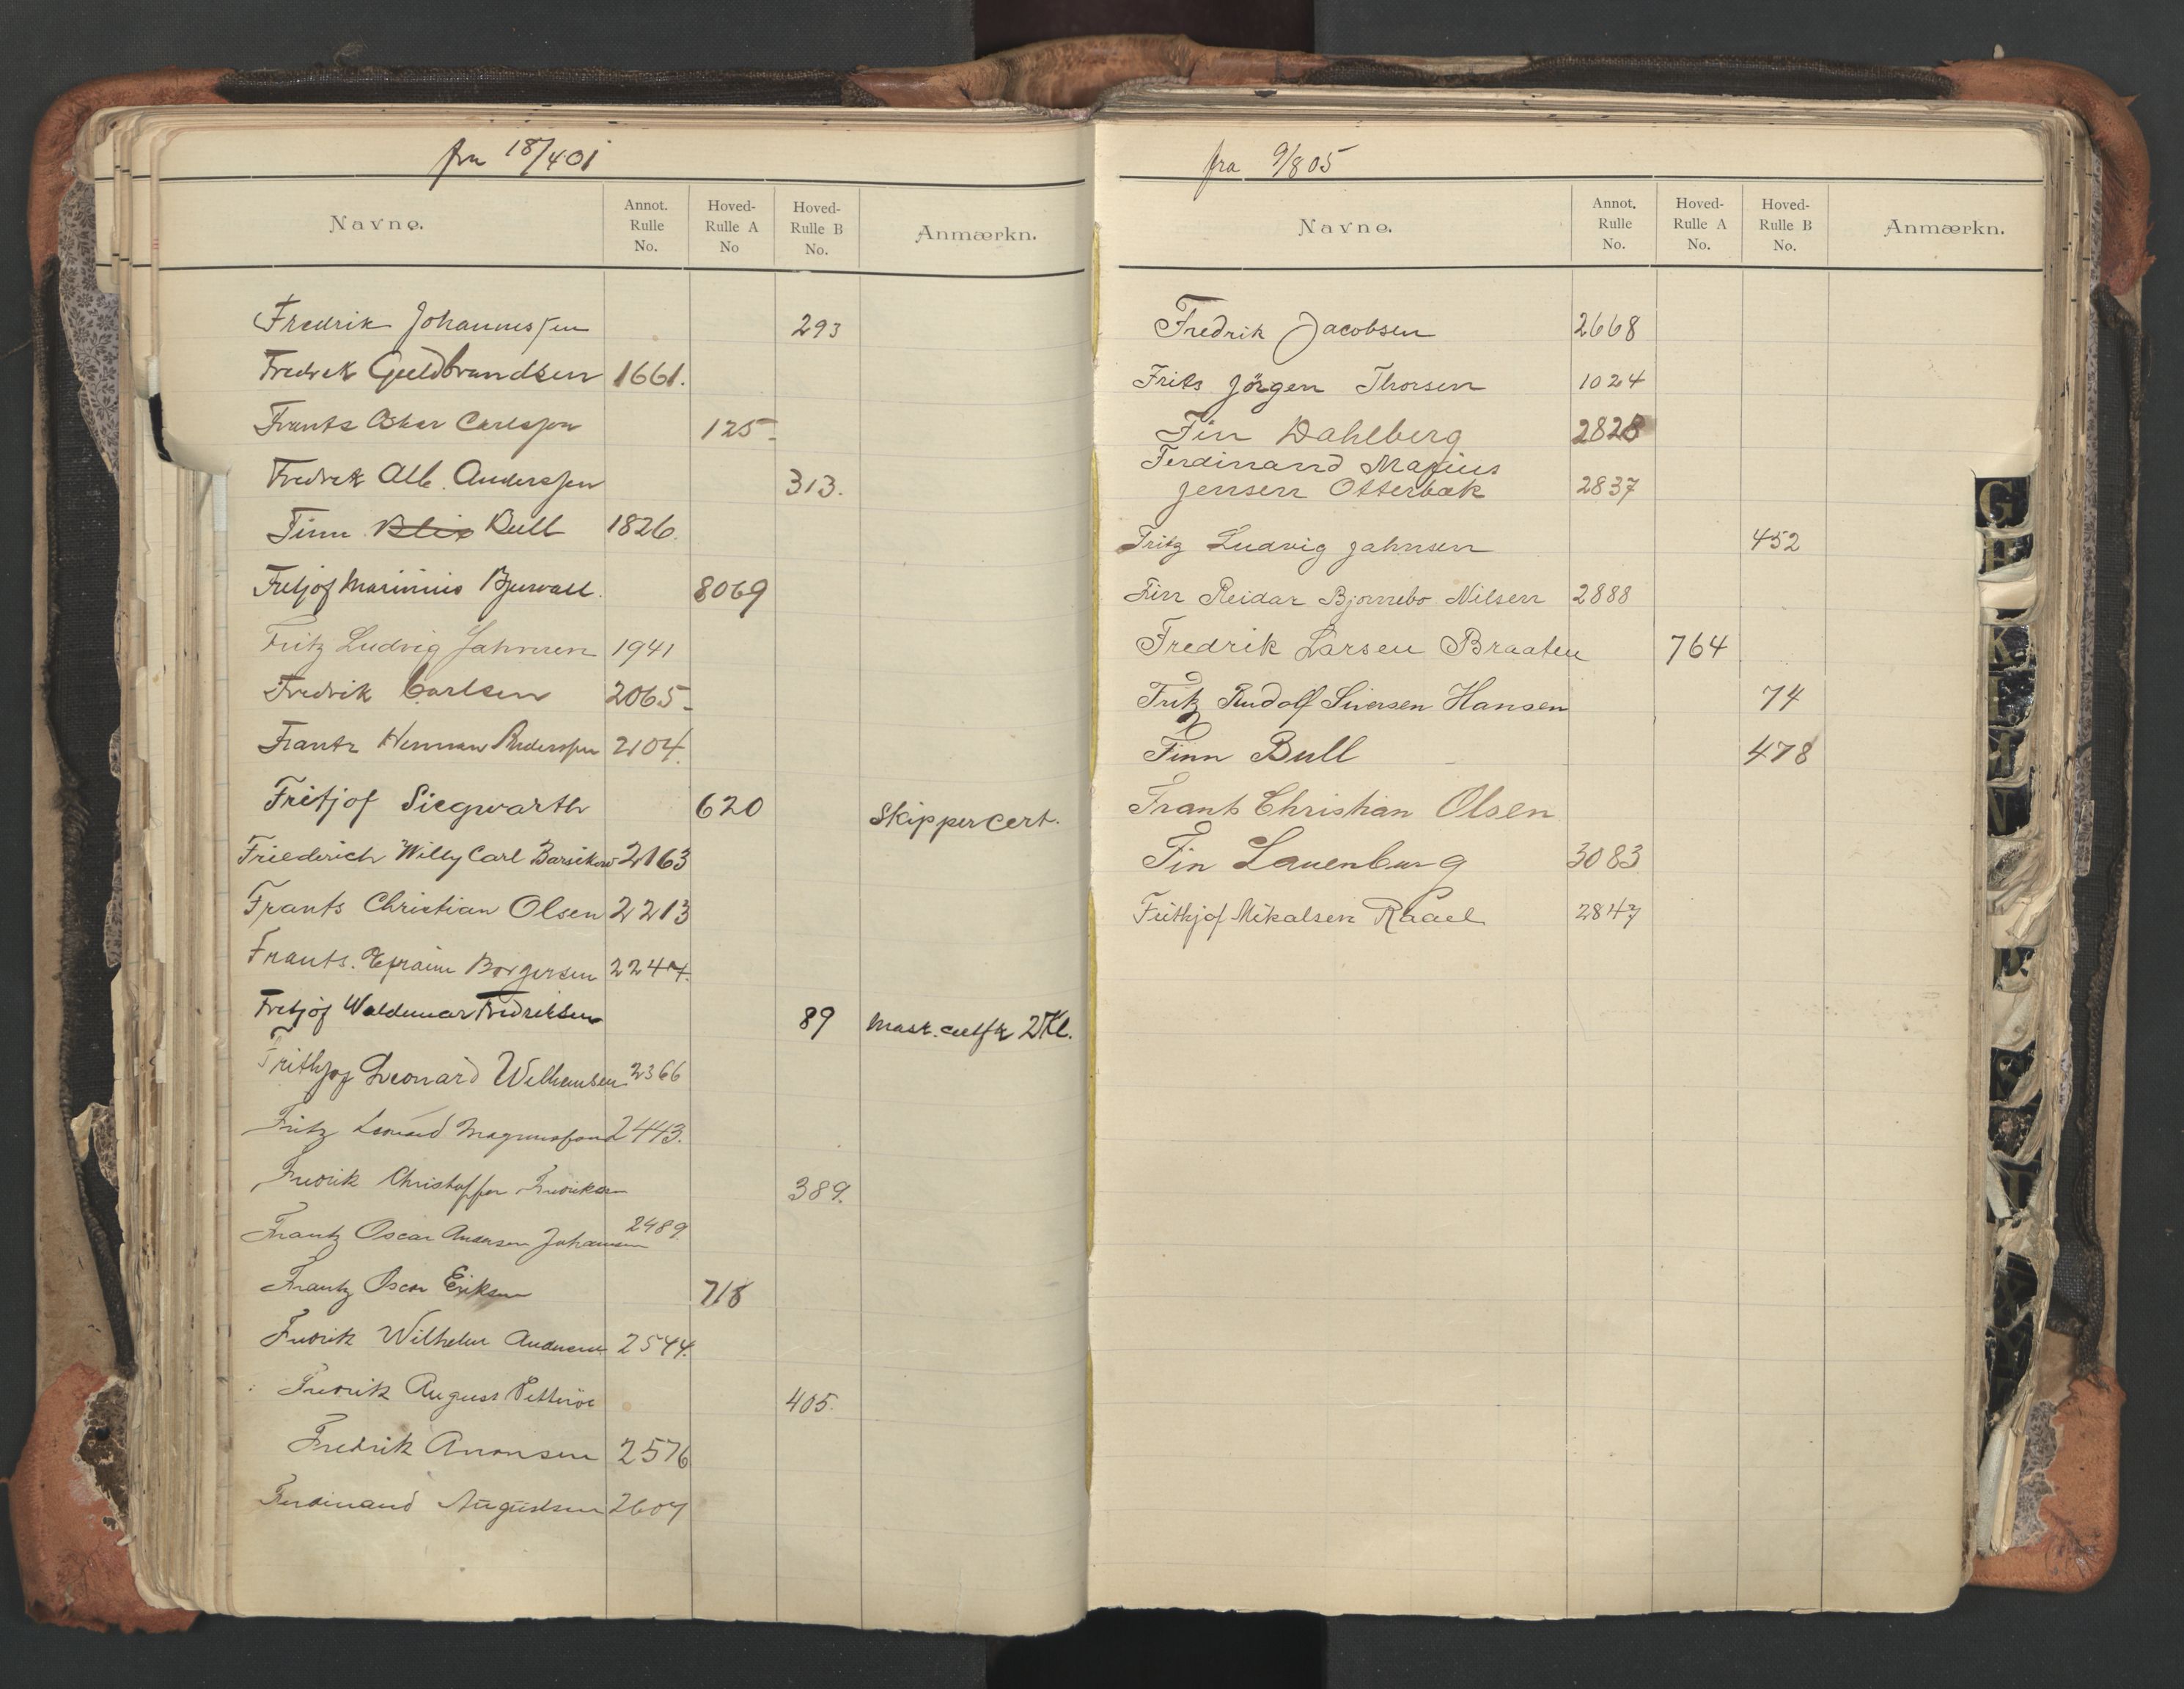 fra 18/4 01
Navne. Annot. Rulle No. Hoved-Rulle A No Hoved-Rulle B No. Anmærkn.
Fredrik Johannessen 293
Fredrek Guldbrandsen 1661.
Frants Oskar Carlsson 125
Fredrek Alb. Anderssen 313.
Finn Blix Bull 1826.
Fritjof Marinius 8069
Fritz Ludvig Jahnsen 1941
Fredrik Carlsen 2065
Frantz Herman Anderssen 2104.
Fritjof Siegwarth 620 Skippercert.
Friederich Willy Carl Barsikow 2163
Frants Christian Olsen 2213
Frants. Efraim Borgersen 2247.
Fritjof Waldemar Fredriksen 89 Mask. 2 Kl.
Frithjof Leonard Wilhemsen 2366
Fritz Leonard 2443.
Fredrik Christoffer Fredriksen 389.
Frantz Oscar Andersen Johansen 2489.
Frantz Oscar Eriksen 718
Fredrik Wilhelm Andersen 2544.
Fredrik August 405.
Fredrik Aronsen 2576
Ferdinand Augustsen 2607
fra 9/8 05
Navne. Annot. Rulle No. Hoved-Rulle A No. Hoved-Rulle B No. Anmærkn.
Fredrik Jacobsen 2668
Frits Jörgen Thorsen 1024
Fin Dahlberg 2828
Ferdinand Marius
Jensen Otterbæk 2837
Fritz Ludvig Jahnsen 452
Finn Reidar Bjornebo Nilsen 2888
Fredrik Larsen Braaten 764
Fritz Rudolf Siversen Hansen 74
Finn Bull 478
Frants Christian Olsen
Fin Lauenburg 3083
Frithjof Mikalsen Raael 2847
G
H
K
L
N